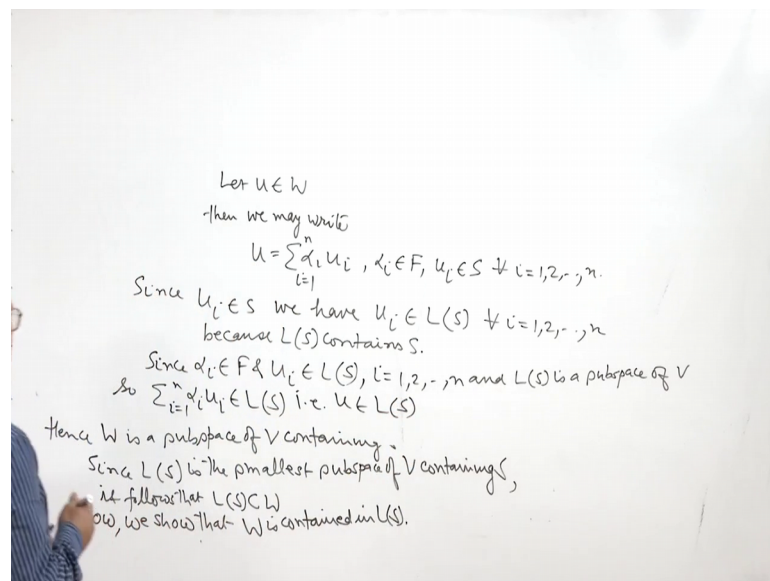 Let u ∈ W
then we may write
u = Σ_{i=1}^{n} α_i u_i , α_i ∈ F, u_i ∈ S ∀ i = 1,2,-.,n.
Since u_i ∈ S we have u_i ∈ L(S) ∀ i = 1,2,-..,n
because L(S) contains S.
Since α_i ∈ F & u_i ∈ L(S), i = 1,2,-,n and L(S) is a subspace of V
so Σ_{i=1}^{n} α_i u_i ∈ L(S) i.e. u ∈ L(S)
Hence W is a subspace of V containing .
Since L(S) is the smallest subspace of V containing S,
it follows that L(S) ⊂ W
ow, we show that W is contained in L(S).